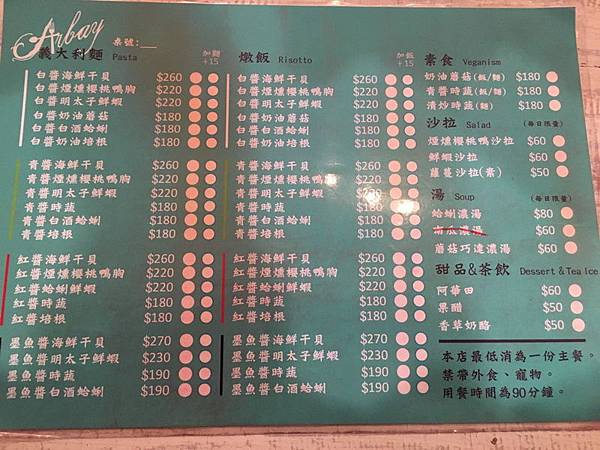 Arbay
桌號:__
義大利麵 Pasta 加麵+15
白醬海鮮干貝 $260
白醬煙燻櫻桃鴨胸 $220
白醬明太子鮮蝦 $220
白醬奶油蘑菇 $180
白醬白酒蛤蜊 $180
白醬奶油培根 $180
青醬海鮮干貝 $260
青醬煙燻櫻桃鴨胸 $220
青醬明太子鮮蝦 $220
青醬時蔬 $180
青醬白酒蛤蜊 $180
青醬培根 $180
紅醬海鮮干貝 $260
紅醬煙燻櫻桃鴨胸 $220
紅醬蛤蜊鮮蝦 $220
紅醬時蔬 $180
紅醬培根 $180
墨魚醬海鮮干貝 $270
墨魚醬明太子鮮蝦 $230
墨魚醬時蔬 $190
墨魚醬白酒蛤蜊 $190
燉飯 Risotto 加飯+15
白醬海鮮干貝 $260
白醬煙燻櫻桃鴨胸 $220
白醬明太子鮮蝦 $220
白醬奶油蘑菇 $180
白醬白酒蛤蜊 $180
白醬奶油培根 $180
青醬海鮮干貝 $260
青醬煙燻櫻桃鴨胸 $220
青醬明太子鮮蝦 $220
青醬時蔬 $180
青醬白酒蛤蜊 $180
青醬培根 $180
紅醬海鮮干貝 $260
紅醬煙燻櫻桃鴨胸 $220
紅醬蛤蜊鮮蝦 $220
紅醬時蔬 $180
紅醬培根 $180
墨魚醬海鮮干貝 $270
墨魚醬明太子鮮蝦 $230
墨魚醬時蔬 $190
墨魚醬白酒蛤蜊 $190
素食 Veganism
奶油蘑菇(飯/麵) $180
青醬時蔬(飯/麵) $180
清炒時蔬(麵) $180
沙拉 Salad (每日限量)
煙燻櫻桃鴨沙拉 $60
鮮蝦沙拉 $60
蘿蔓沙拉(素) $50
湯 Soup (每日限量)
蛤蜊濃湯 $80
南瓜濃湯 $60
蘑菇巧達濃湯 $60
甜品&茶飲 Dessert＆Tea Ice
阿華田 $60
果醋 $50
香草奶酪 $50
本店最低消為一份主餐。
禁帶外食、寵物。
用餐時間為90分鐘。